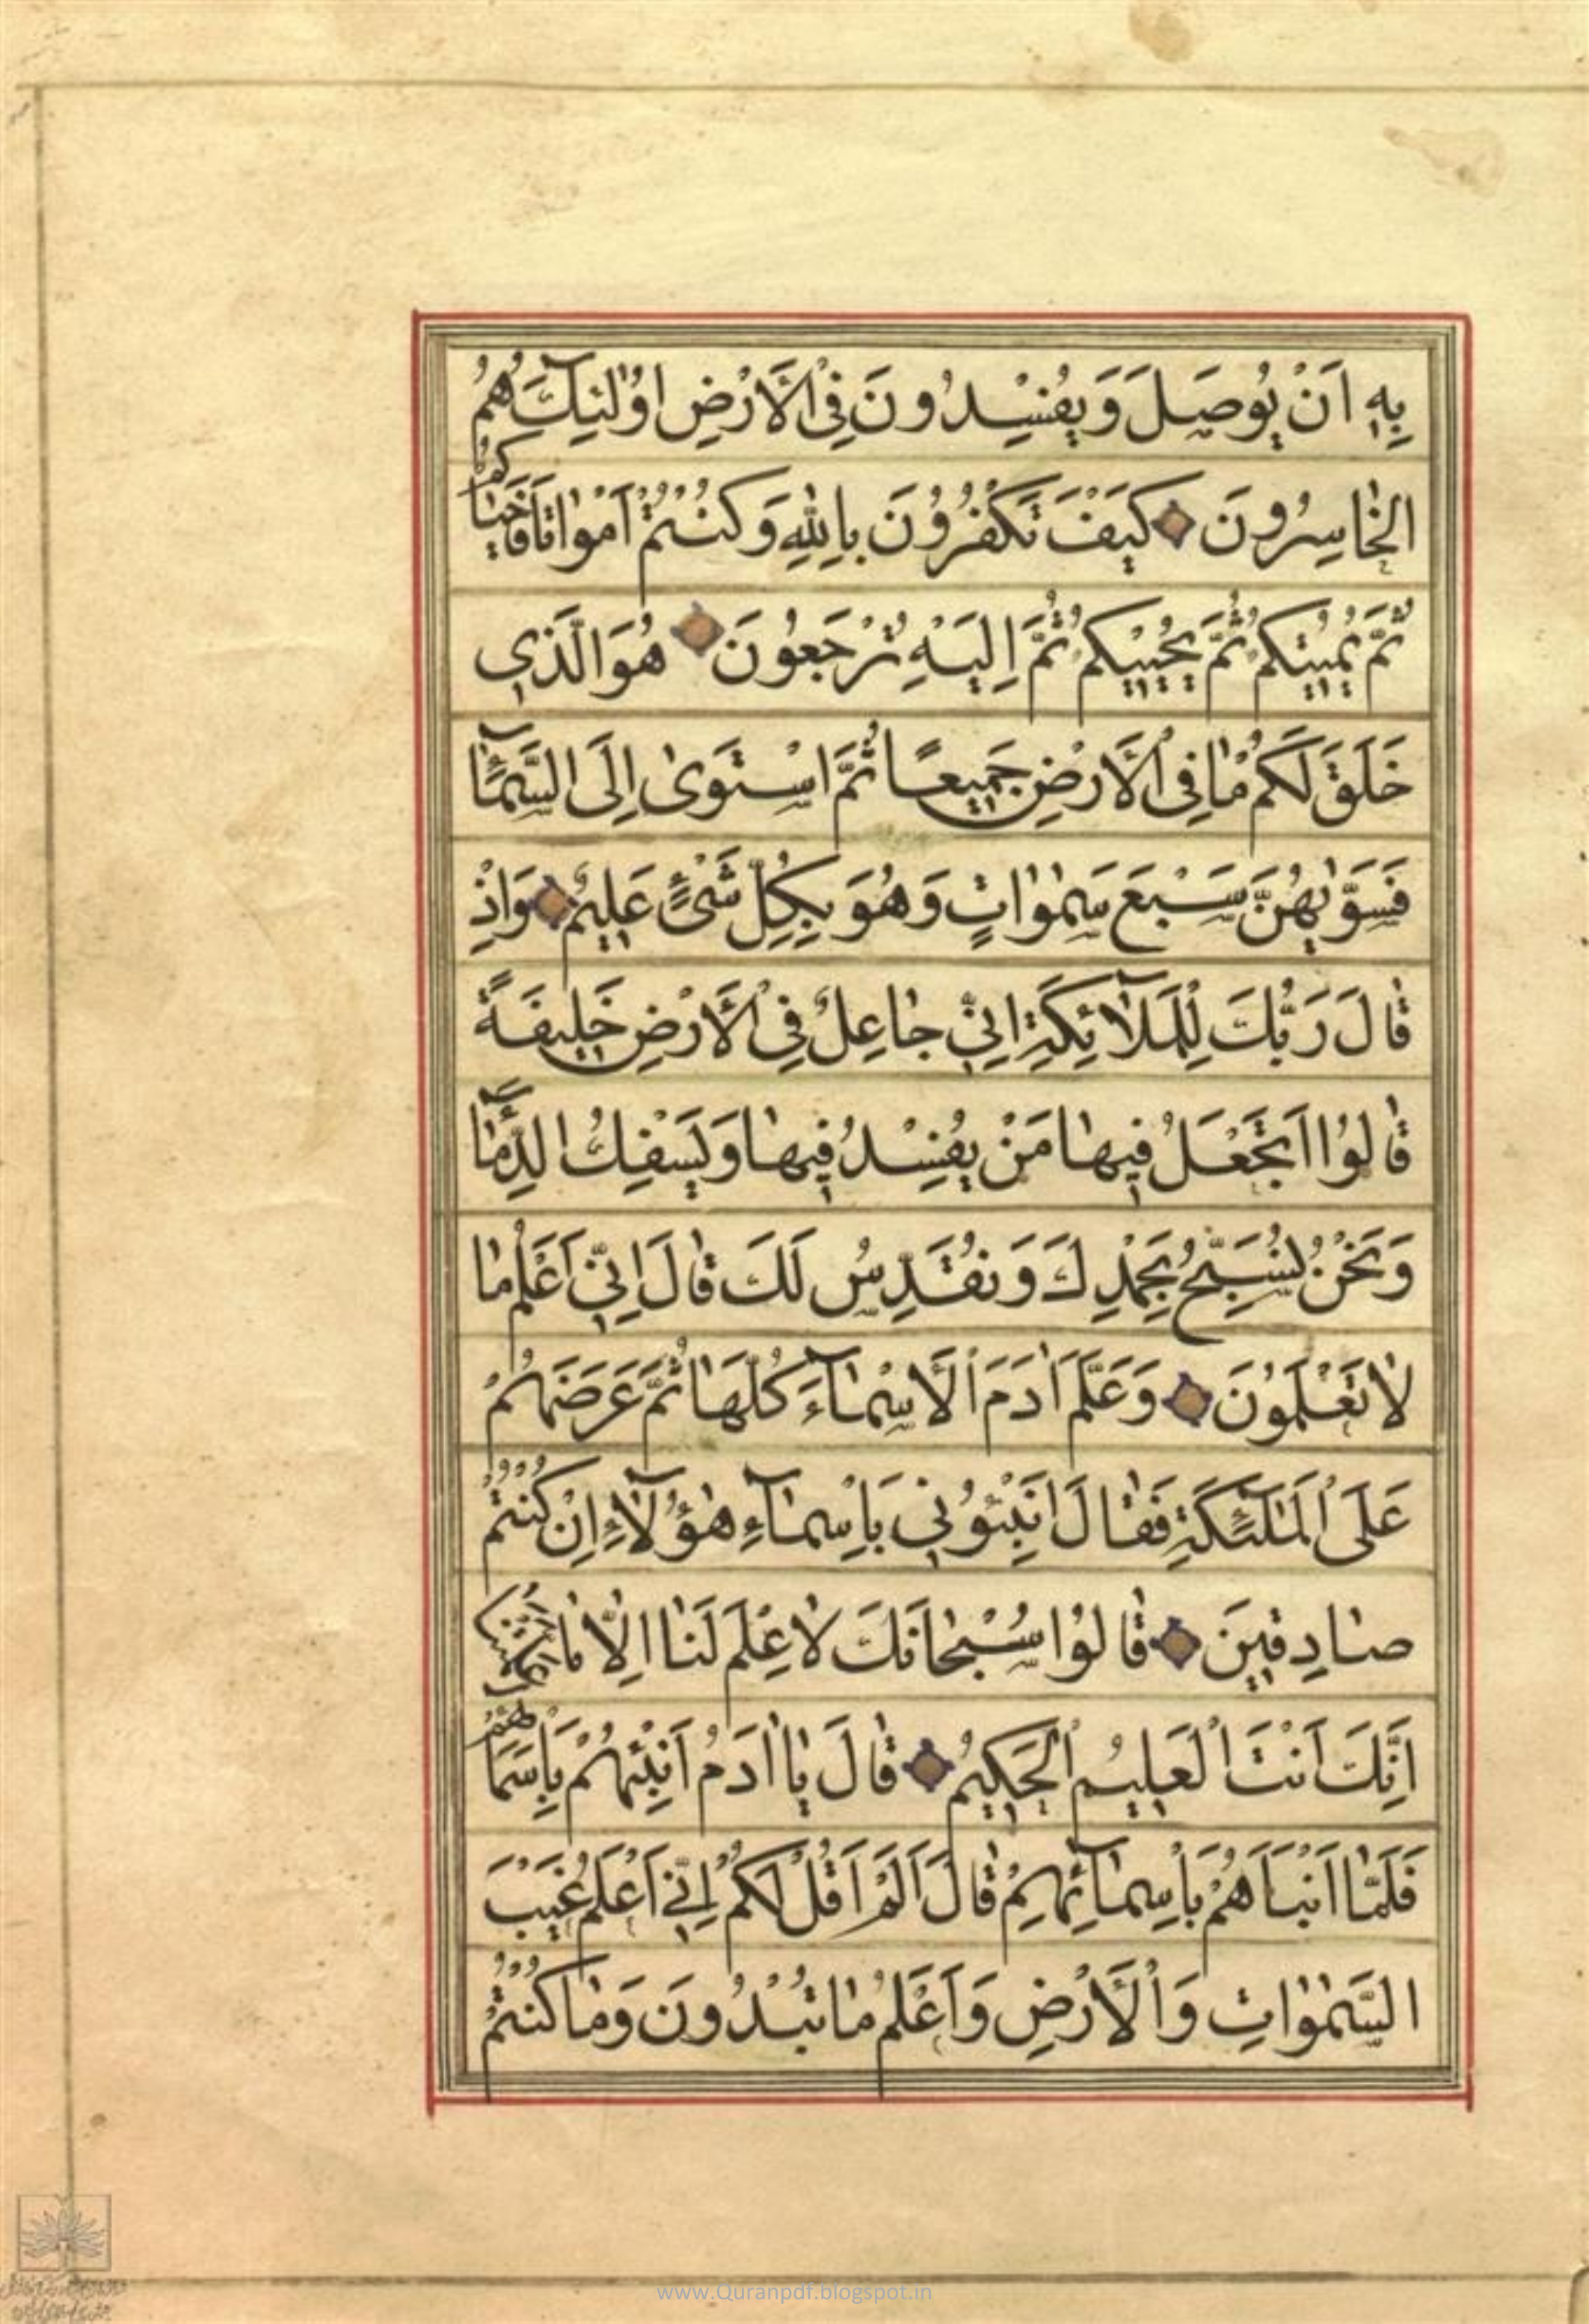 بِهِ اَنْ يُوصَلَ وَيُفْسِدُونَ فِى الْاَرْضِ اُولٰئِكَ هُمُ
الْخَاسِرُونَ كَيْفَ تَكْفُرُونَ بِاللّٰهِ وَكُنْتُمْ اَمْوَاتًا فَاَحْيَاكُمْ
ثُمَّ يُمِيتُكُمْ ثُمَّ يُحْيِيكُمْ ثُمَّ اِلَيْهِ تُرْجَعُونَ هُوَ الَّذِى
خَلَقَ لَكُمْ مَا فِى الْاَرْضِ جَمِيعًا ثُمَّ اسْتَوٰى اِلَى السَّمَاءِ
فَسَوّٰيهُنَّ سَبْعَ سَمٰوَاتٍ وَهُوَ بِكُلِّ شَىْءٍ عَلِيمٌ وَاِذْ
قَالَ رَبُّكَ لِلْمَلَائِكَةِ اِنِّى جَاعِلٌ فِى الْاَرْضِ خَلِيفَةً
قَالُوا اَتَجْعَلُ فِيهَا مَنْ يُفْسِدُ فِيهَا وَيَسْفِكُ الدِّمَاءَ
وَنَحْنُ نُسَبِّحُ بِحَمْدِكَ وَنُقَدِّسُ لَكَ قَالَ اِنِّى اَعْلَمُ مَا
لَا تَعْلَمُونَ وَعَلَّمَ اٰدَمَ الْاَسْمَاءَ كُلَّهَا ثُمَّ عَرَضَهُمْ
عَلَى الْمَلٰئِكَةِ فَقَالَ اَنْبِئُونِى بِاَسْمَاءِ هٰؤُلَاءِ اِنْ كُنْتُمْ
صَادِقِينَ قَالُوا سُبْحَانَكَ لَا عِلْمَ لَنَا اِلَّا مَا عَلَّمْتَنَا
اِنَّكَ اَنْتَ الْعَلِيمُ الْحَكِيمُ قَالَ يَا اٰدَمُ اَنْبِئْهُمْ بِاَسْمَائِهِمْ
فَلَمَّا اَنْبَاَهُمْ بِاَسْمَائِهِمْ قَالَ اَلَمْ اَقُلْ لَكُمْ اِنِّى اَعْلَمُ غَيْبَ
السَّمٰوَاتِ وَالْاَرْضِ وَاَعْلَمُ مَا تُبْدُونَ وَمَا كُنْتُمْ
www.Quranpdf.blogspot.in